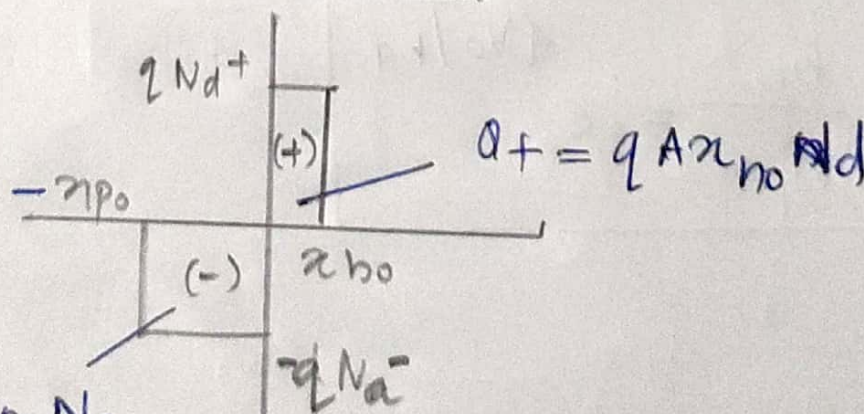 qNd+
(+)
Q+ = qAxnoNd
-xpo
(-)
xno
-qNa-